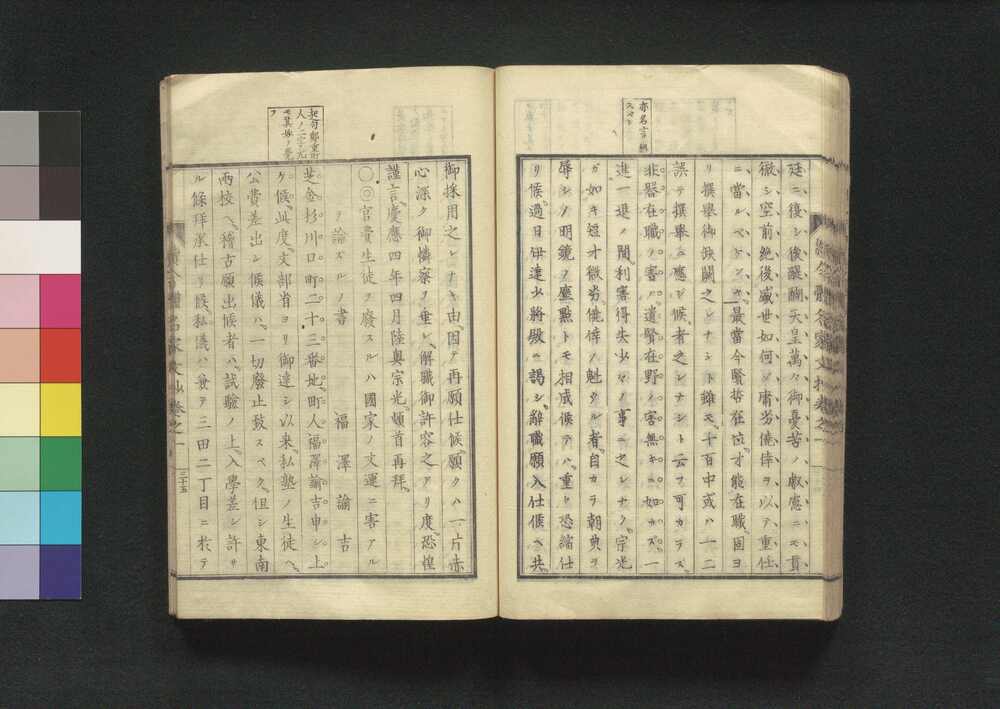 廷ニ復シ後醍醐天皇萬々御憂苦ノ叡慮ニモ貫
徹シ空前絶後盛世如何ゾ庸劣僥倖ヲ以テ重任
ニ當ルベケンヤ最當今賢哲在位才能在職固ヨ
リ撰擧御缺闕之レナシト雖モ千百中或ハ一二
誤テ撰擧ニ應ジ候者之レナシト云フ可カラズ
非器在職ノ害ハ遺賢在野ノ害無キニ如カズ一
進一退ノ間利害得失少々ノ事ニ之レナク宗光
ガ如キ短才微劣僥倖ノ魁タル者自カラ朝典ヲ
辱シメ明鏡ヲ塵點トモ相成候テハ重々恐縮仕
リ候過日伊達少將殿ニ謁シ辭職願入仕候ヘ共
亦名言
御採用之レナキ由因テ再願仕候願クハ一片赤
心深ク御憐察ヲ垂レ解職御許容之アリ度恐惶
謹言慶應四年四月陸奥宗光頓首再拜
〇◎官費生徒ヲ廢スルハ國家ノ文運ニ害アル
ヲ論ズルノ書 福澤諭吉
芝金杉川口町二十三番地町人福澤諭吉申シ上
ケ候此度文部省ヨリ御達シ以来私塾ノ生徒ヘ
公費差出シ候儀ハ一切廢止致スベク但シ東南
両校ヘ稽古願出候者ハ試驗ノ上入學差シ許サ
ル條拜承仕リ候私儀ハ兼テ三田二丁目ニ於テ
起句鄭重町
人ノ二字尤
モ其妙ヲ覺
フ
三十五